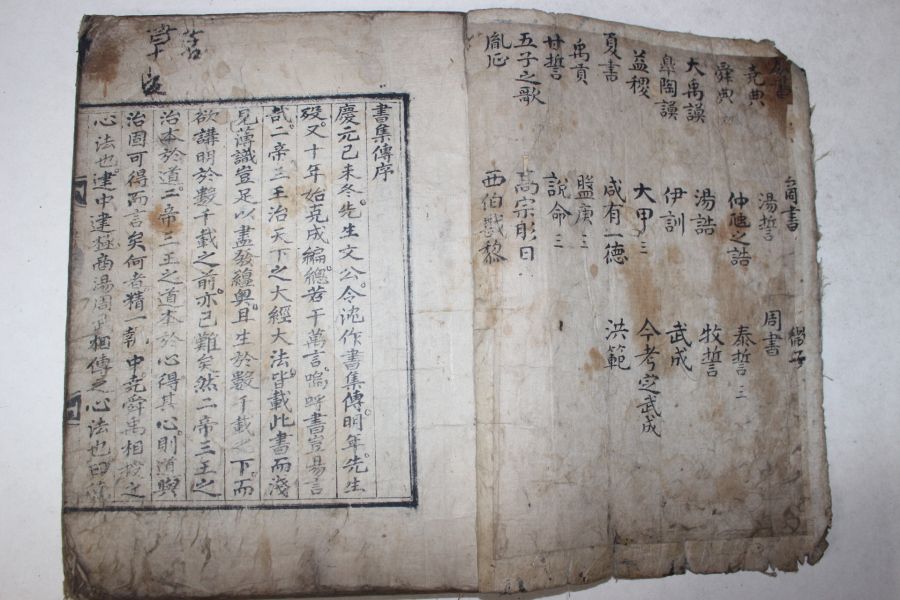 虞書
堯典
舜典
大禹謨
皐陶謨
益稷
夏書
禹貢
甘誓
五子之歌
胤征
商書
湯誓
仲虺之誥
湯誥
伊訓
大甲三
咸有一德
盤庚三
說命三
高宗肜日
西伯戡黎
微子
周書
泰誓三
牧誓
武成
今考定武成
洪範
書集傳序
慶元己未冬先生文公令沈作書集傳明年先生
歿又十年始克成編總若干萬言嗚呼書豈易言
哉二帝三王治天下之大經大法皆載此書而淺
見薄識豈足以盡發蘊奧且生於數千載之下而
欲講明於數千載之前亦已難矣然二帝三王之
治本於道二帝三王之道本於心得其心則道與
治固可得而言矣何者精一執中堯舜禹相授之
心法也建中建極商湯周武相傳之心法也曰